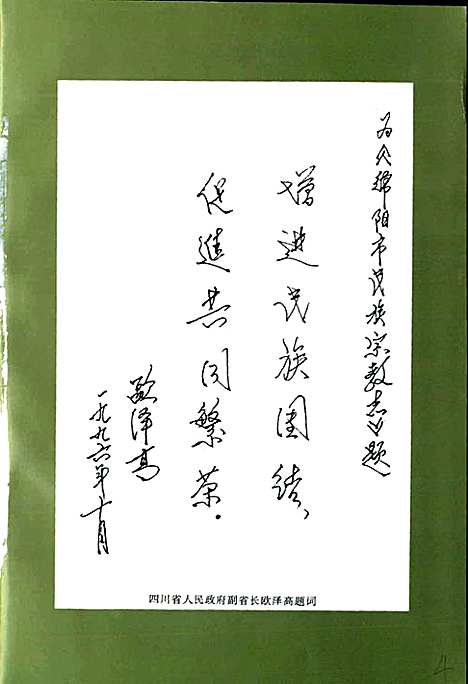 为《绵阳市民族宗教志》题
增进民族团结、
促進共同繁荣。
欧泽高
一九九六年十月
四川省人民政府副省长欧泽高题词
4